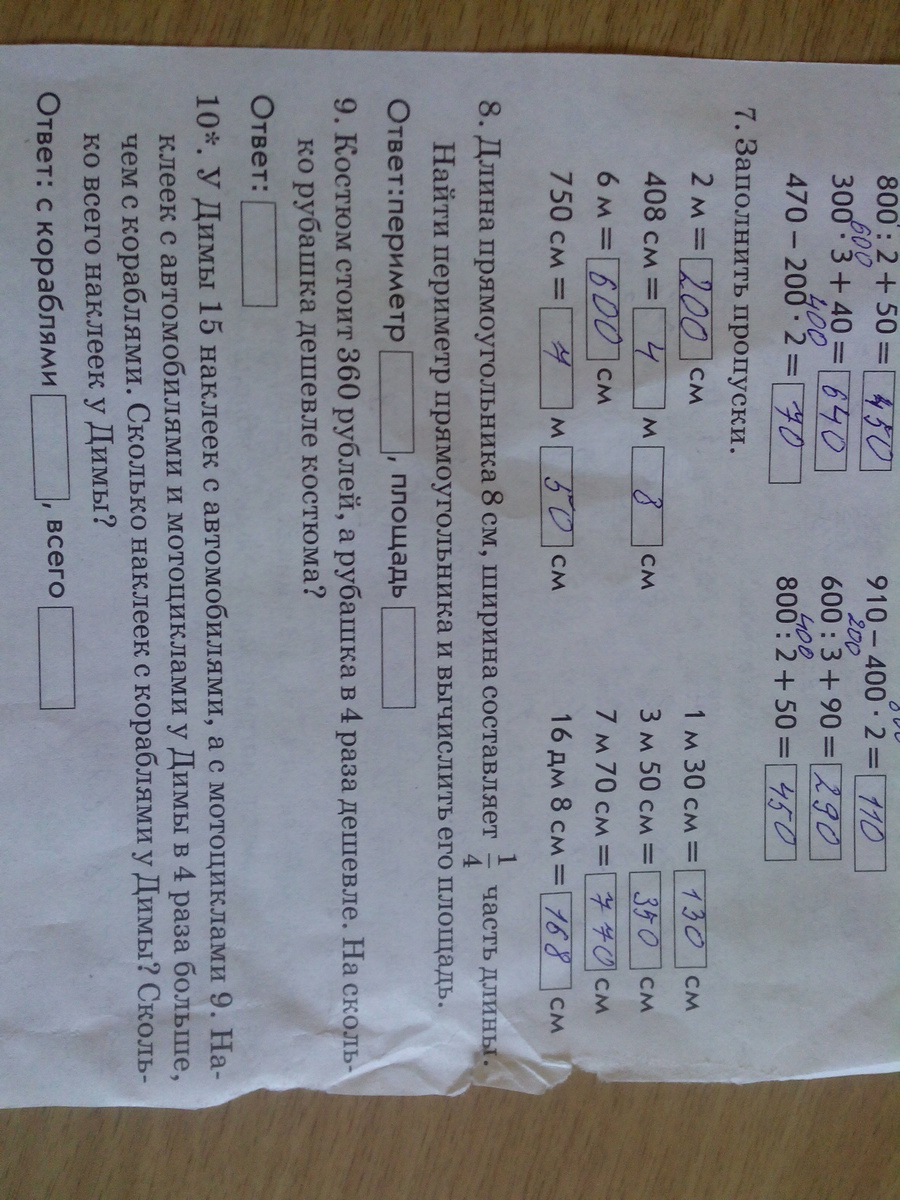 800 : 2 + 50 = 450
910 – 400 · 2 = 110
600
200
300 · 3 + 40 = 640
600 : 3 + 90 = 290
400
400
470 – 200 · 2 = 70
800 : 2 + 50 = 450
7. Заполнить пропуски.
2 м = 200 см
1 м 30 см = 130 см
408 см = 4 м 8 см
3 м 50 см = 350 см
6 м = 600 см
7 м 70 см = 770 см
750 см = 7 м 50 см
16 дм 8 см = 168 см
8. Длина прямоугольника 8 см, ширина составляет 1/4 часть длины.
Найти периметр прямоугольника и вычислить его площадь.
Ответ:периметр , площадь
9. Костюм стоит 360 рублей, а рубашка в 4 раза дешевле. На сколь-
ко рубашка дешевле костюма?
Ответ:
10*. У Димы 15 наклеек с автомобилями, а с мотоциклами 9. На-
клеек с автомобилями и мотоциклами у Димы в 4 раза больше,
чем с кораблями. Сколько наклеек с кораблями у Димы? Сколь-
ко всего наклеек у Димы?
Ответ: с кораблями , всего